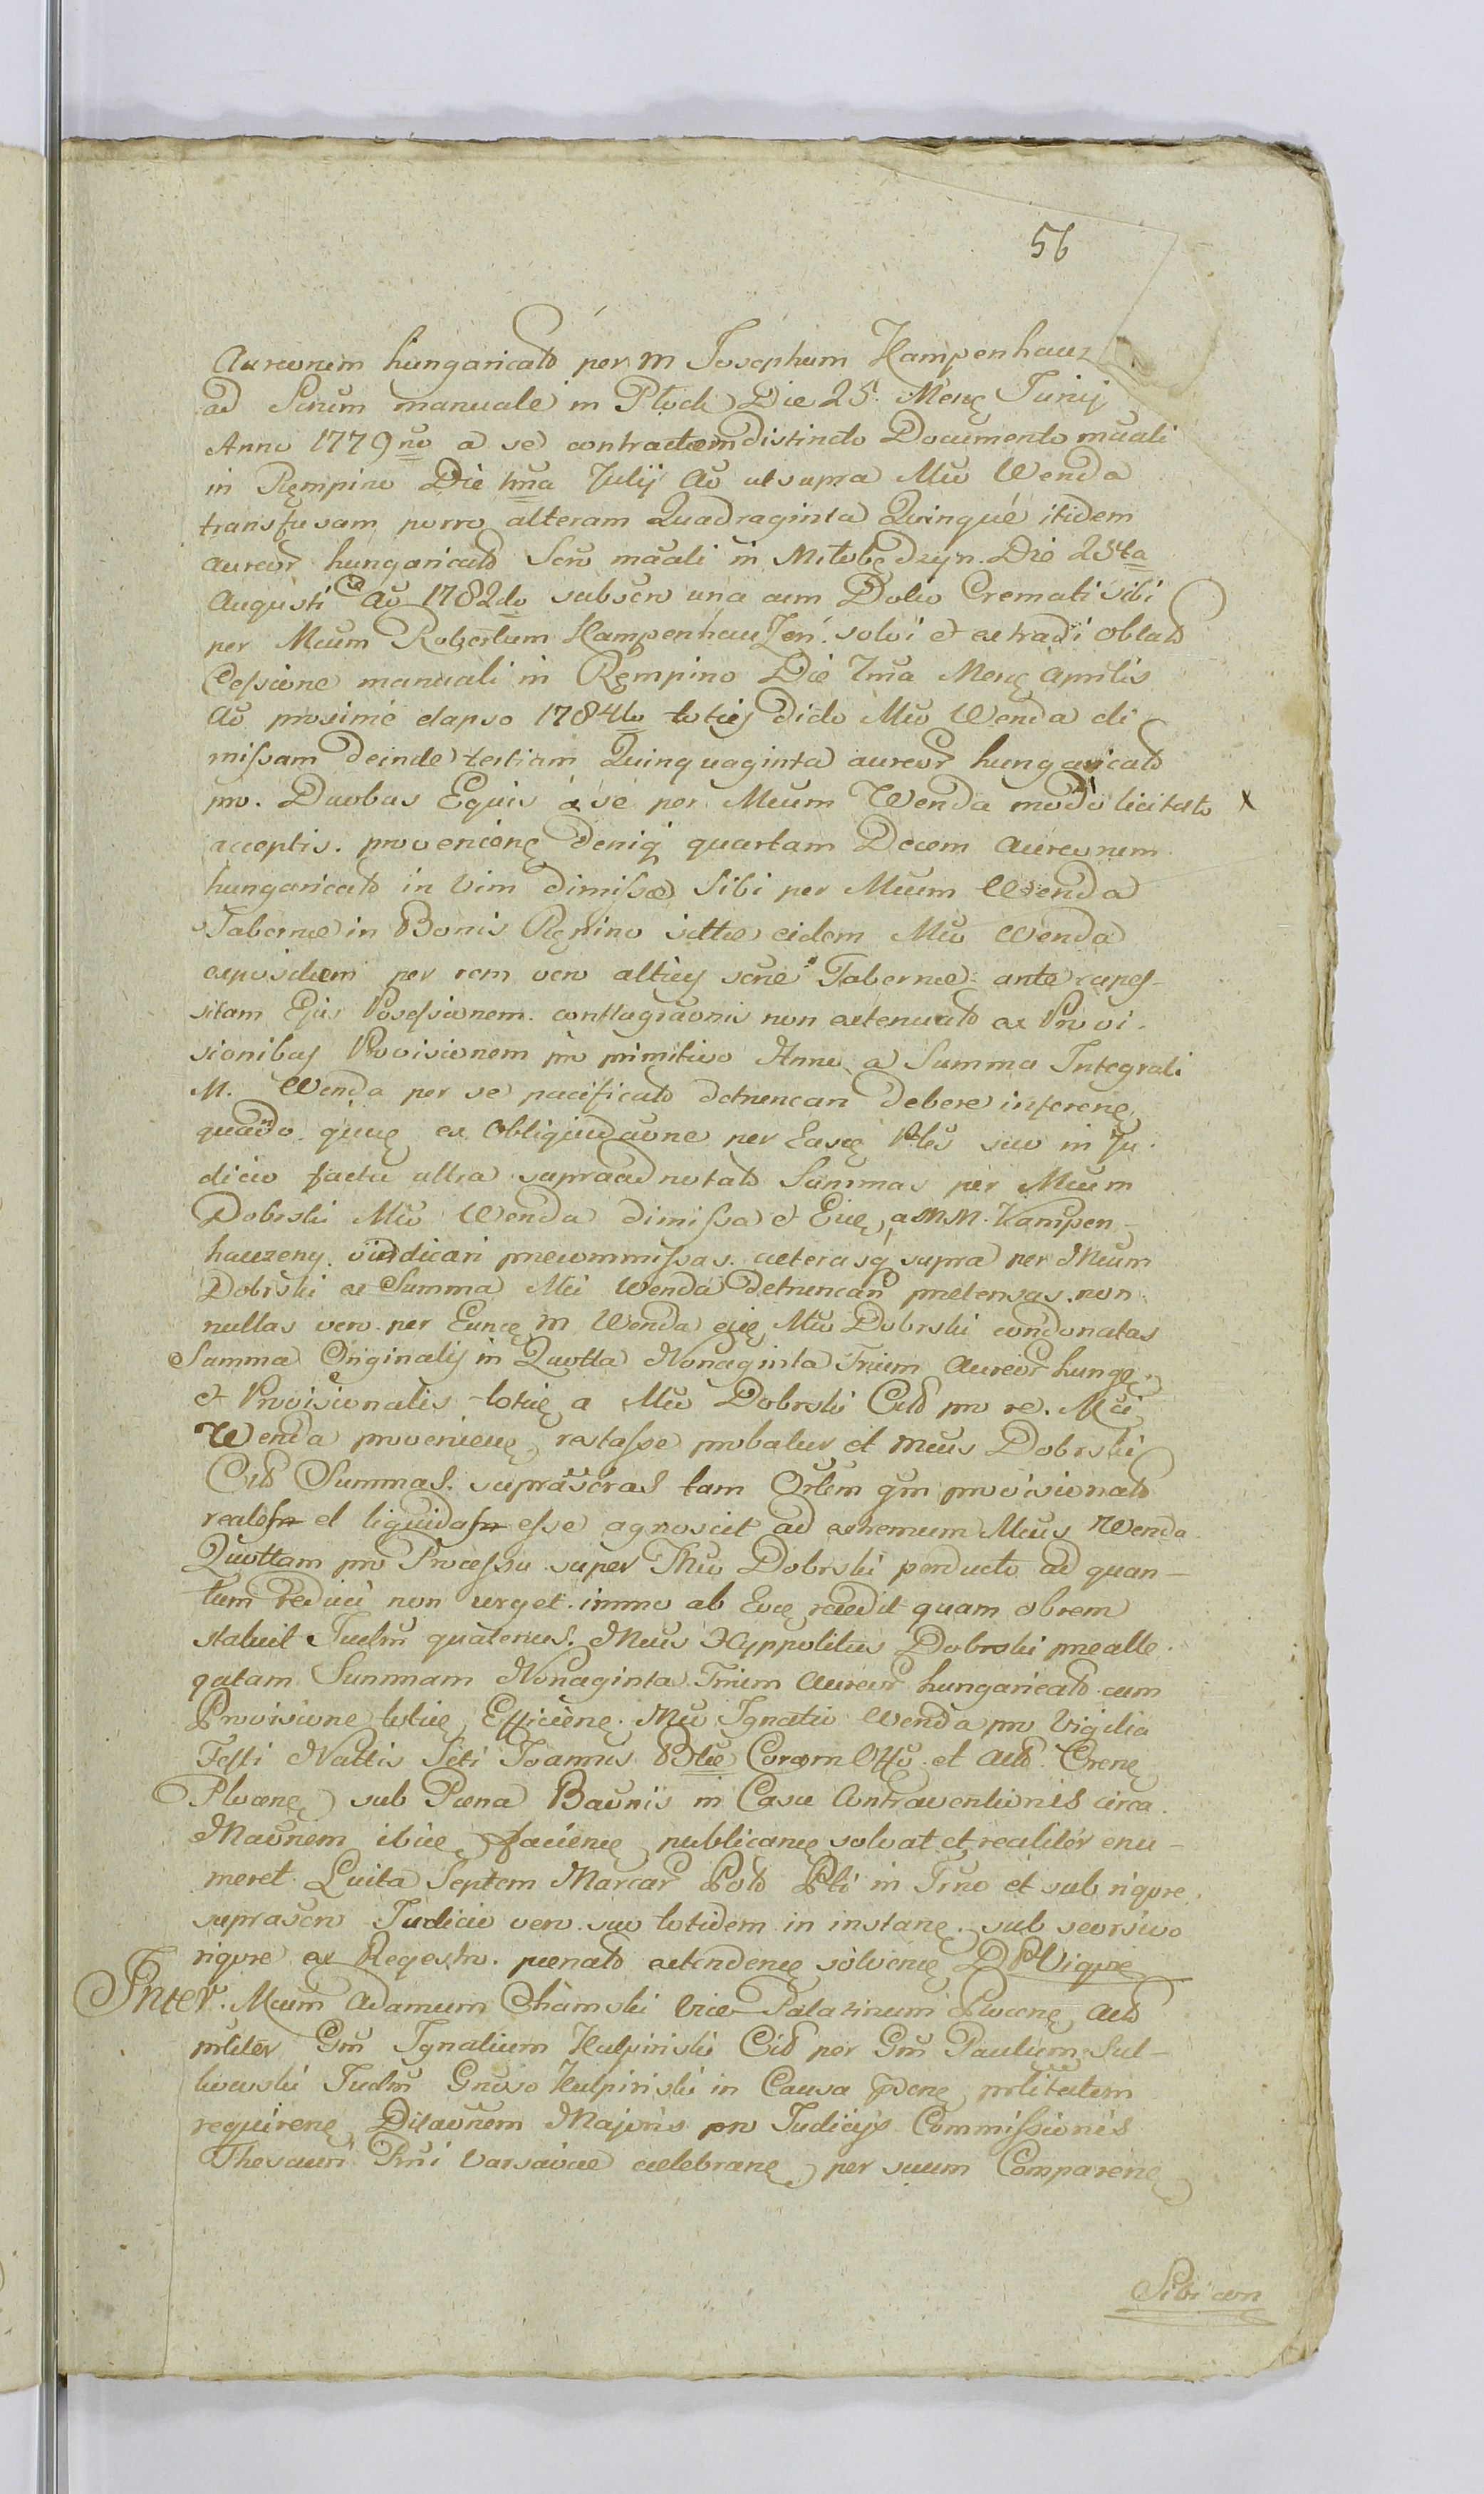 56
Aureorum hungarical per M Josephum Hampenhauz
ad Scrum manuale in Płock Die 25. Mens Junij
Anno 1779no a se contractam distincto Documento mãali
in Rempino Die 1ma Julij Ao ut supra Mco Wenda
transfusam porro alteram Quadraginta Quinque itidem
aureor hungarical Scro mãali in Die 25ta
Augusti Ao 1782do subscro una cum Dolio Cremati sibi
per Mcum Robertum Hampenhauzen. solvi et extradi oblato
Cessione manuali in Rempino Die 7ma Mens Aprilis
Ao proxime elapso 1784to toties dicto Mco Wenda di
missam deinde tertiam Quinquaginta aureor hungarical
pro. Duobus Equis a se per Mcum Wenda modo licitato x
acceptis. provenien deniq quartam Decem aureorum
hungarical in vim dimissæ sibi per Mcum Wenda
Tabernæ in Bonis Rempino sittæ eidem Mco Wenda
per rem vero altius scræ Tabernæ ante capes-
sitam Ejus Possessionem. conflagraonis non extenuato ex Provi-
sionibus Provisionem pro primitivo Anno a Summa Integrali
M. Wenda per se pacificato detruncari debere inferen
quãdo quæ ex Obliquidaone per Easce Ptes suo in Ju-
dicio facta ultra supraadnotato Summas per Mcum
Dobrski Mco Wenda dimissa et Eice, a MM. Kampen-
hauzeny. vindicari præcommissas. cæterasq supra per Mcum
Dobrski ex Summa Mci Wenda detruncari prætensas. non
nullas vero per Eunce M Wenda eice Mco Dobrski condonatas
Summa Originalis in Quotta Nonaginta Trium Aureor hung.
et Provisionalis totie a Mco Dobrski Citto pro re. Mci
Wenda provenien, restasse probatur et Mcus Dobrski
Citt Summas. suprascras tam Ortem qm provisional
reales et liquidas esse agnoscit ad extremum Mcus Wenda
Quottam pro Processu super Mco Dobrski perducto ad quan-
tum reduci non urget. immo ab Eoce recedit quam obrem
statuit Judm quatenus. Mcus Hyppolitus Dobrski præalle-
gatam Summam Nonaginta Trium Aureor hungarical cum
Provisione totie Efficien. Mco Ignatio Wenda pro Vigilia
Festi Nattis Scti Joannis Btæ Coram Offo. et Act. Cren
Plocen, sub Pæna Baonis in Casu Contraventionis circa
Maonem ibie facien publican solvat et realiter enu-
meret Luita Septem Marcar Pol Pti in Trno et sub rigore.
suprascro Judicio vero suo totidem in instan. sub seorsivo
rigore ex Regestro. pænal extenden solven D Vigore
Inter. Mcum Adamum Chamski Vice Palatinum Plocen Act
prlter Gm Ignatium Kulpinski Citt per Gm Paulum Sul-
kowski Judm Gnoso Kulpinski in Causa præn prlitatem
requiren, Dilaonem Majoris pro Judicijs Commissionis
Thesauri Rni Varsaviæ celebran, per suum Comparen
Sibi con